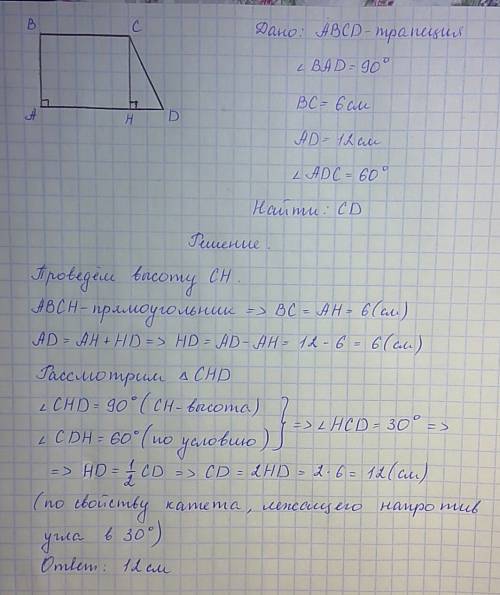 B C
A H D
Дано: ABCD - трапеция
∠BAD = 90°
BC = 6 см
AD = 12 см
∠ADC = 60°
Найти: CD
Решение.
Проведём высоту CH.
ABCH - прямоугольник => BC = AH = 6 (см)
AD = AH + HD => HD = AD - AH = 12 - 6 = 6 (см)
Рассмотрим △CHD
∠CHD = 90° (CH - высота)
∠CDH = 60° (по условию) } => ∠HCD = 30° =>
=> HD = 1/2 CD => CD = 2HD = 2·6 = 12 (см)
(по свойству катета, лежащего напротив
угла в 30°)
Ответ: 12 см